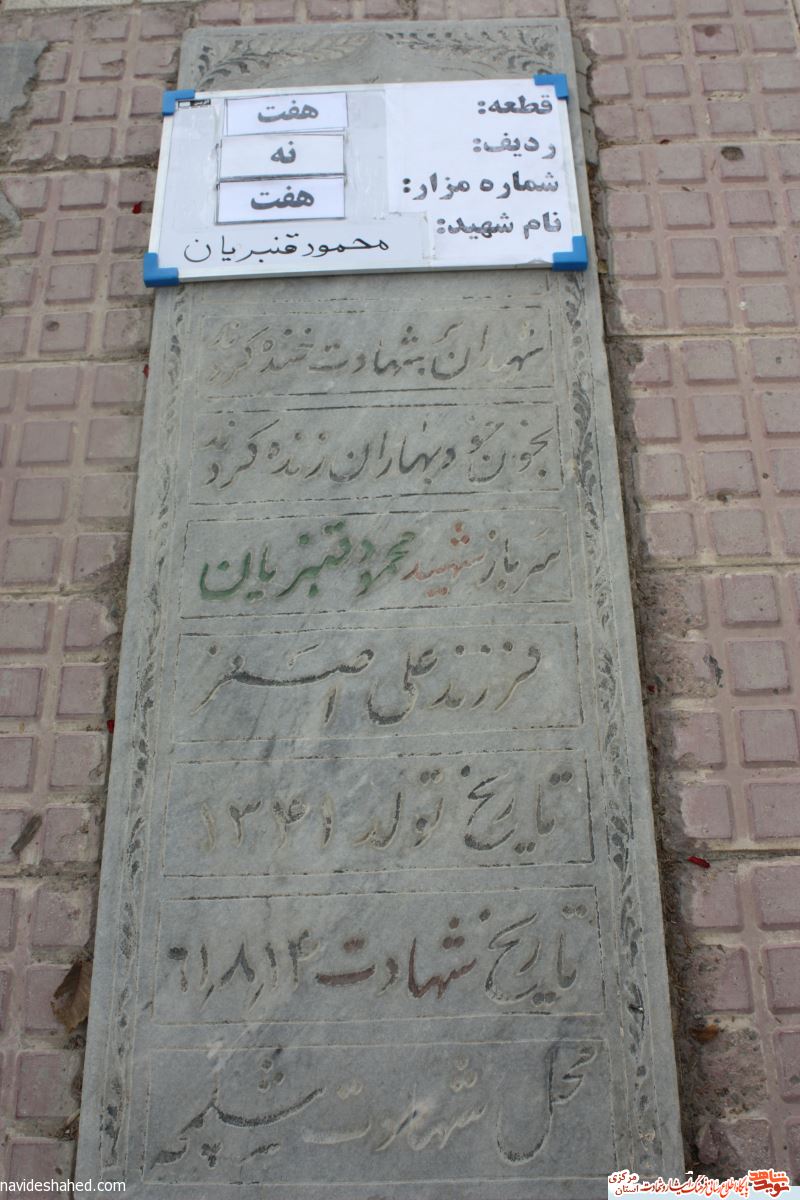 قطعه: هفت
ردیف: نه
شماره مزار: هفت
نام شهید: محمود قنبریان
شهیدان بشهادت خنده کردند
بخون خود بهاران زنده کردند
سرباز شهید محمود قنبریان
فرزند علی اصغر
تاریخ تولد ۱۳۴۱
تاریخ شهادت ۶۱٫۸٫۱۴
محل شهادت شلمچه
navideshahed.com
نوید شاهد
مرکزی
استان